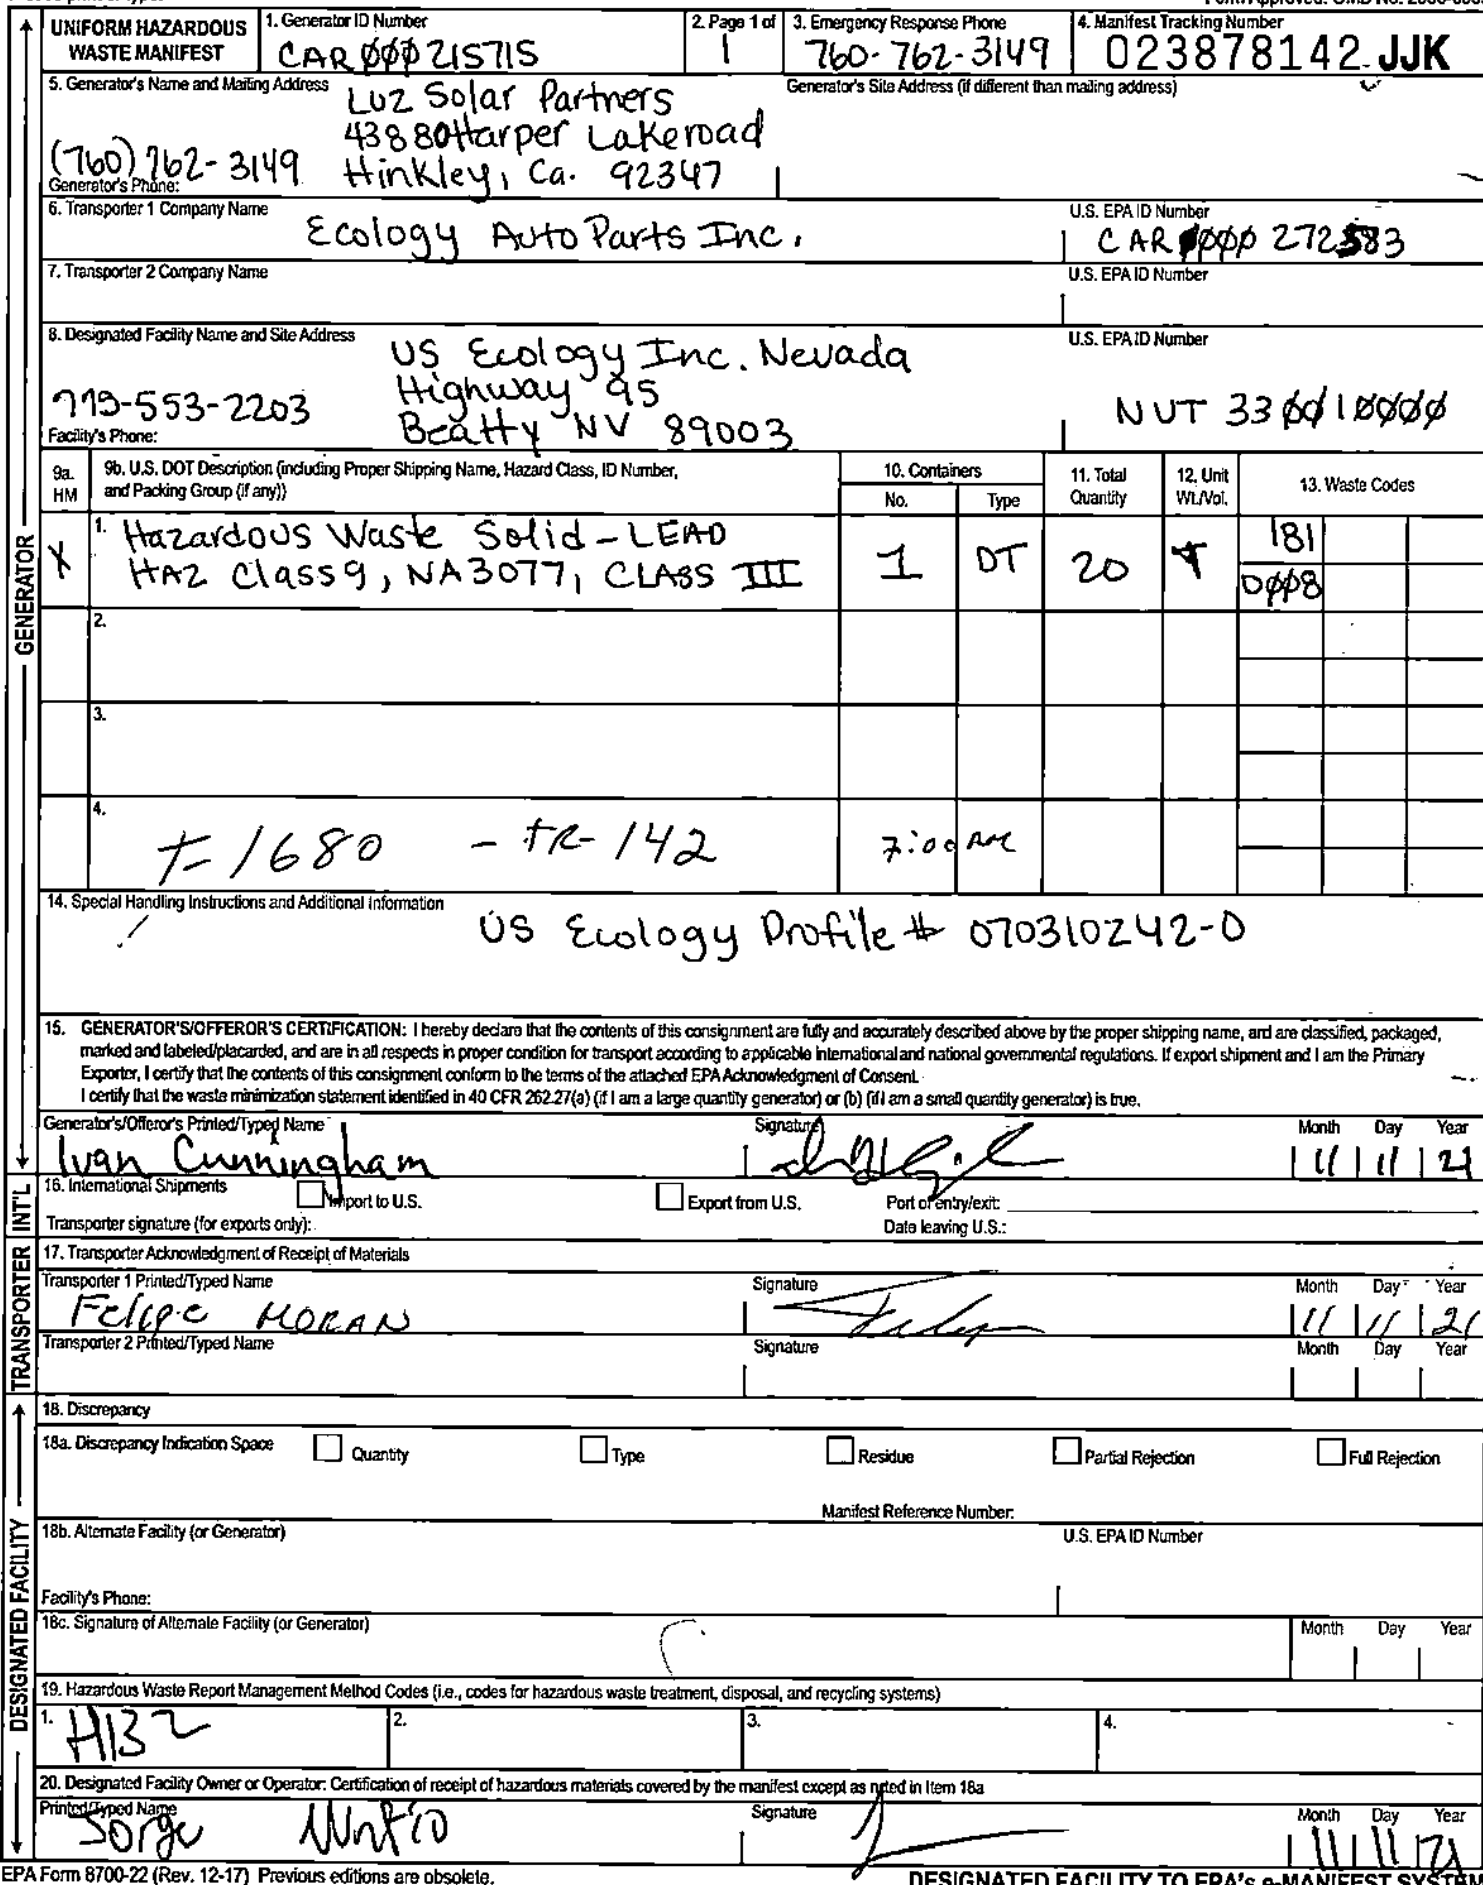 UNIFORM HAZARDOUS WASTE MANIFEST
1. Generator ID Number
CAR ØØØ 215715
2. Page 1 of
1
3. Emergency Response Phone
760-762-3149
4. Manifest Tracking Number
023878142 JJK
5. Generator's Name and Mailing Address
Luz Solar Partners
43880 Harper Lake road
Hinkley, Ca. 92347
Generator's Site Address (if different than mailing address)
(760) 762-3149
Generator's Phone:
6. Transporter 1 Company Name
Ecology Auto Parts Inc.
U.S. EPA ID Number
7. Transporter 2 Company Name
U.S. EPA ID Number
8. Designated Facility Name and Site Address
US Ecology Inc. Nevada
Highway 95
Beatty NV 89003
U.S. EPA ID Number
NVT 33ØØ1ØØØØ
Facility's Phone:
9a. HM
9b. U.S. DOT Description (including Proper Shipping Name, Hazard Class, ID Number,
and Packing Group (if any))
10. Containers
No.
Type
11. Total Quantity
12. Unit Wt./Vol.
13. Waste Codes
X
1. Hazardous Waste Solid - LEAD
HAZ Class 9, NA3077, CLASS III
1
DT
20
181
DØØ8
2.
3.
4.
T-1680 - TR-142
7:00 AM
14. Special Handling Instructions and Additional Information
US Ecology Profile # 070310242-0
15. GENERATOR'S/OFFEROR'S CERTIFICATION: I hereby declare that the contents of this consignment are fully and accurately described above by the proper shipping name, and are classified, packaged,
marked and labeled/placarded, and are in all respects in proper condition for transport according to applicable international and national governmental regulations. If export shipment and I am the Primary
Exporter, I certify that the contents of this consignment conform to the terms of the attached EPA Acknowledgment of Consent.
I certify that the waste minimization statement identified in 40 CFR 262.27(a) (if I am a large quantity generator) or (b) (if I am a small quantity generator) is true.
Generator's/Offeror's Printed/Typed Name
Ivan Cunningham
Signature
Month Day Year
11 11 21
16. International Shipments
Import to U.S.
Export from U.S.
Port of entry/exit:
Transporter signature (for exports only):
Date leaving U.S.:
17. Transporter Acknowledgment of Receipt of Materials
Transporter 1 Printed/Typed Name
Felipe MORAN
Signature
Month Day Year
11 11 21
Transporter 2 Printed/Typed Name
Signature
Month Day Year
18. Discrepancy
18a. Discrepancy Indication Space
Quantity
Type
Residue
Partial Rejection
Full Rejection
Manifest Reference Number:
18b. Alternate Facility (or Generator)
U.S. EPA ID Number
Facility's Phone:
18c. Signature of Alternate Facility (or Generator)
Month Day Year
19. Hazardous Waste Report Management Method Codes (i.e., codes for hazardous waste treatment, disposal, and recycling systems)
1. H132
2.
3.
4.
20. Designated Facility Owner or Operator: Certification of receipt of hazardous materials covered by the manifest except as noted in Item 18a
Printed/Typed Name
Jorge
Signature
Month Day Year
11 11 21
EPA Form 8700-22 (Rev. 12-17) Previous editions are obsolete.
DESIGNATED FACILITY TO EPA's e-MANIFEST SYSTEM
GENERATOR
INT'L
TRANSPORTER
DESIGNATED FACILITY